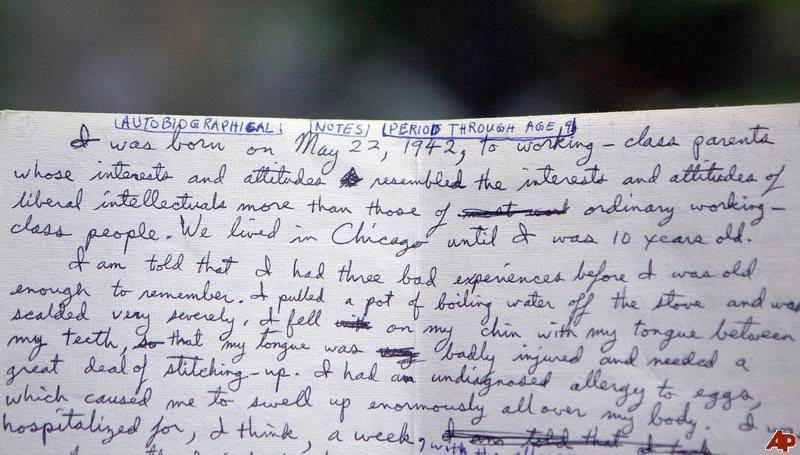 AUTOBIOGRAPHICAL NOTES (PERIOD THROUGH AGE 9)
I was born on May 22, 1942, to working-class parents
whose interests and attitudes resembled the interests and attitudes of
liberal intellectuals more than those of ordinary working-
class people. We lived in Chicago until I was 10 years old.
I am told that I had three bad experiences before I was old
enough to remember. I pulled a pot of boiling water off the stove and was
scalded very severely. I fell on my chin with my tongue between
my teeth, so that my tongue was badly injured and needed a
great deal of stitching-up. I had an undiagnosed allergy to eggs,
which caused me to swell up enormously all over my body. I
hospitalized for, I think, a week, I am told that I
with the
AP